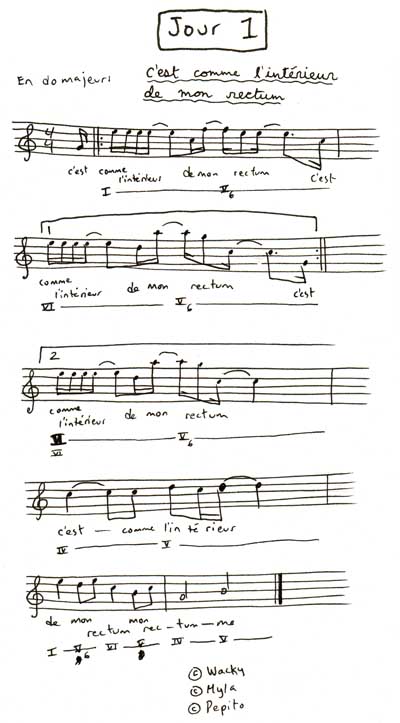 Jour 1
En do majeur:
c'est comme l'intérieur
de mon rectum
4
4
c'est comme
l'intérieur de mon rectum c'est
I V6
1
comme
l'intérieur de mon rectum c'est
VI V6
2
comme
l'intérieur de mon rectum
VI V6
c'est — comme l'in té rieur
IV V
de mon mon
rectum rec-tum-me
I 6 VI V IV V
© Wacky
© Myla
© Pepito